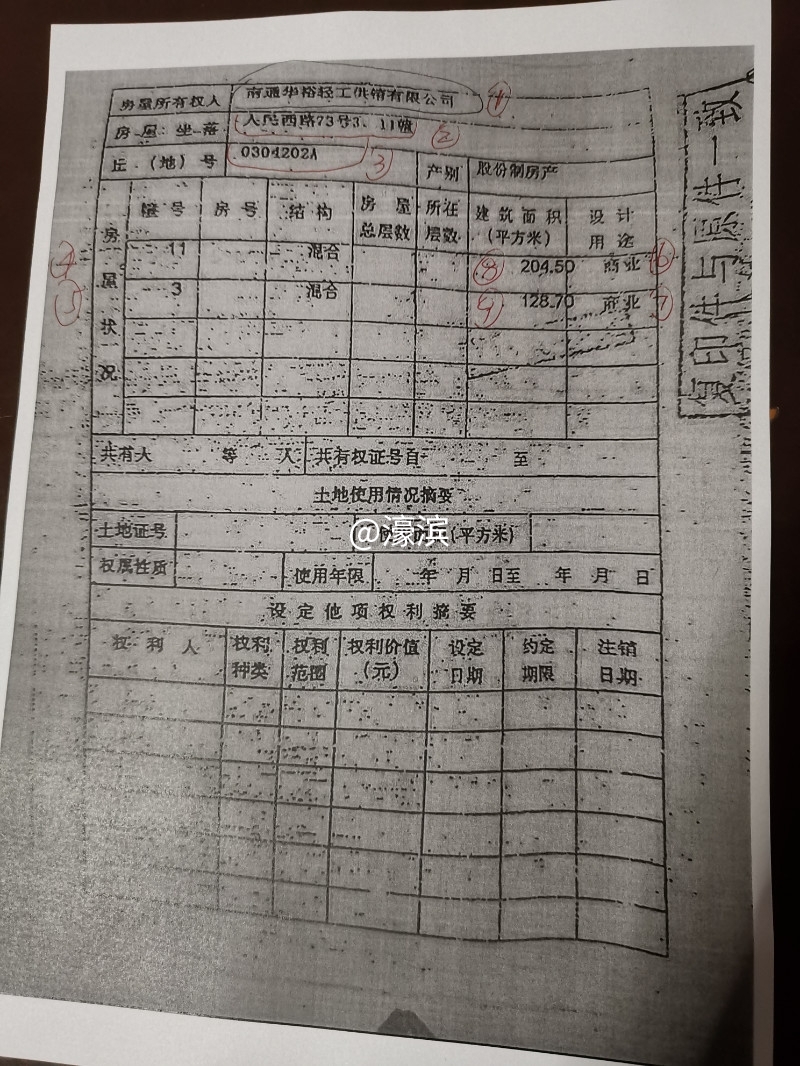 房屋所有权人 南通华裕轻工供销有限公司 ①
房屋坐落 人民西路73号3、11幢 ②
丘(地)号 0304202A ③ 产别 股份制房产
房屋状况
幢号 房号 结构 房屋总层数 所在层数 建筑面积(平方米) 设计用途
④ 11 混合 ⑧ 204.50 商业 ⑥
⑤ 3 混合 ⑨ 128.70 商业 ⑦
共有人 等 人 共有权证号自 至
土地使用情况摘要
土地证号 (平方米)
@濠滨
权属性质 使用年限 年 月 日至 年 月 日
设定他项权利摘要
权利人 权利种类 权利范围 权利价值(元) 设定日期 约定期限 注销日期
复印件与原件一致